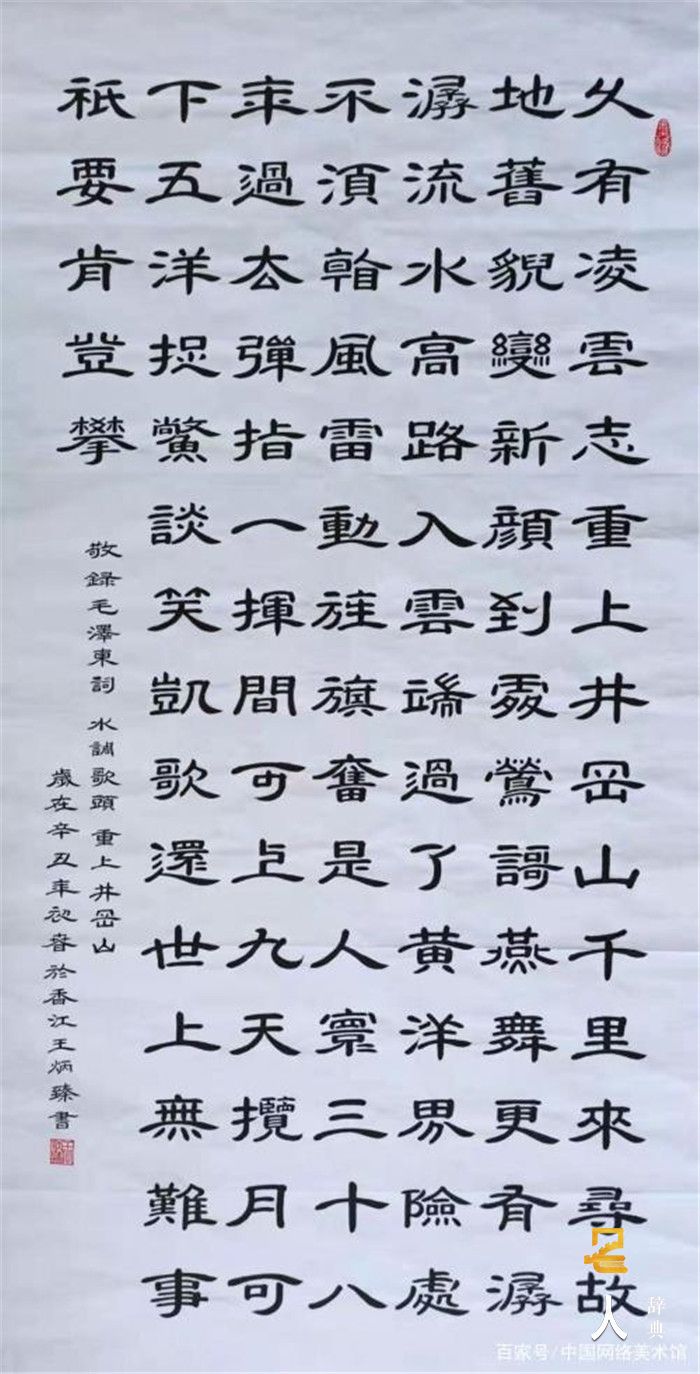 久有凌雲志重上井岡山千里來尋故
地舊貌變新顏到處鶯謌燕舞更有潺
潺流水高路入雲端過了黃洋界險處
不須看風雷動旌旗奮是人寰三十八
年過去彈指一揮間可上九天攬月可
下五洋捉鱉談笑凱歌還世上無難事
祇要肯登攀
敬錄毛澤東詞 水調歌頭 重上井岡山
歲在辛丑年初春於香江王炳臻書
名人
辞典
百家号/中国网络美术馆